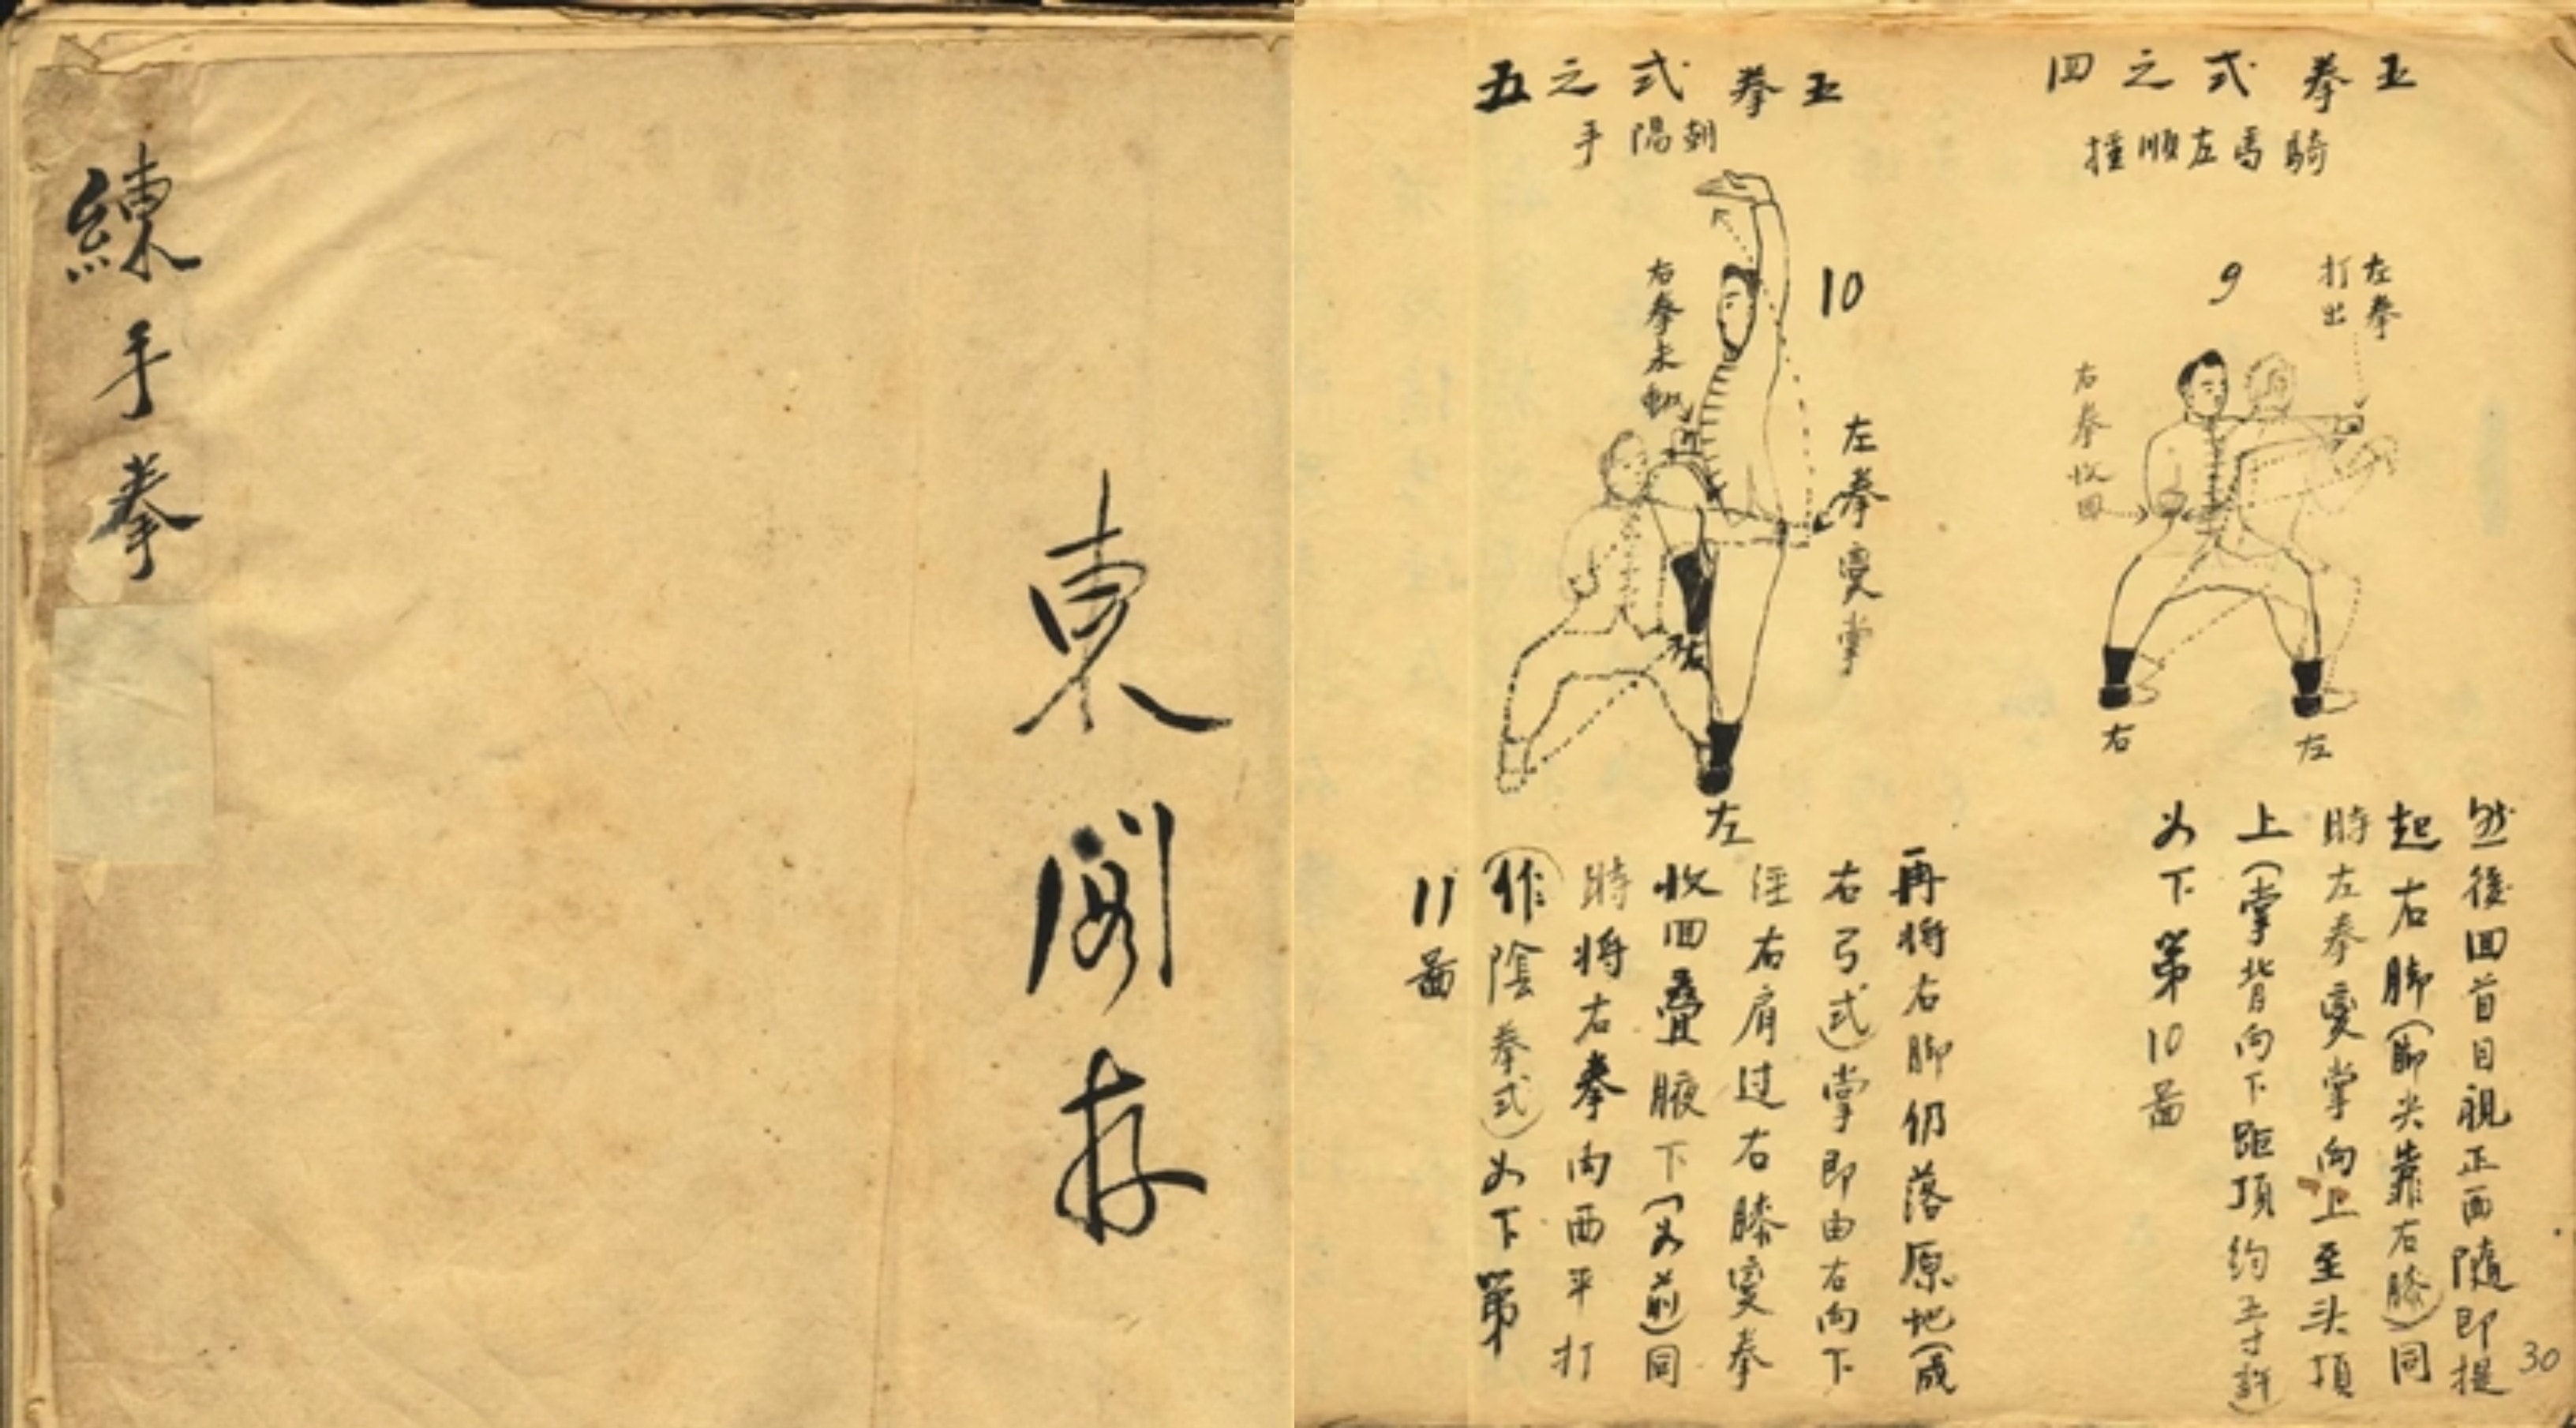 練手拳
東閣存
玉拳式之四
騎馬左順撞
9
左拳
打出
右拳收回
右
左
然後回首目視正面隨即提
起右脚(脚尖靠右膝)同
時左拳變掌向上至头頂
上(掌背向下距頂約三寸許)
如下第10啚
玉拳式之五
手
10
右拳未動
左拳變掌
右
左
再将右脚仍落原地(成
右弓式)掌即由右向下
徑右肩过右膝變拳
收回疊腋下(如前)同
時将右拳向西平打
(作陰拳式)如下第
11啚
30